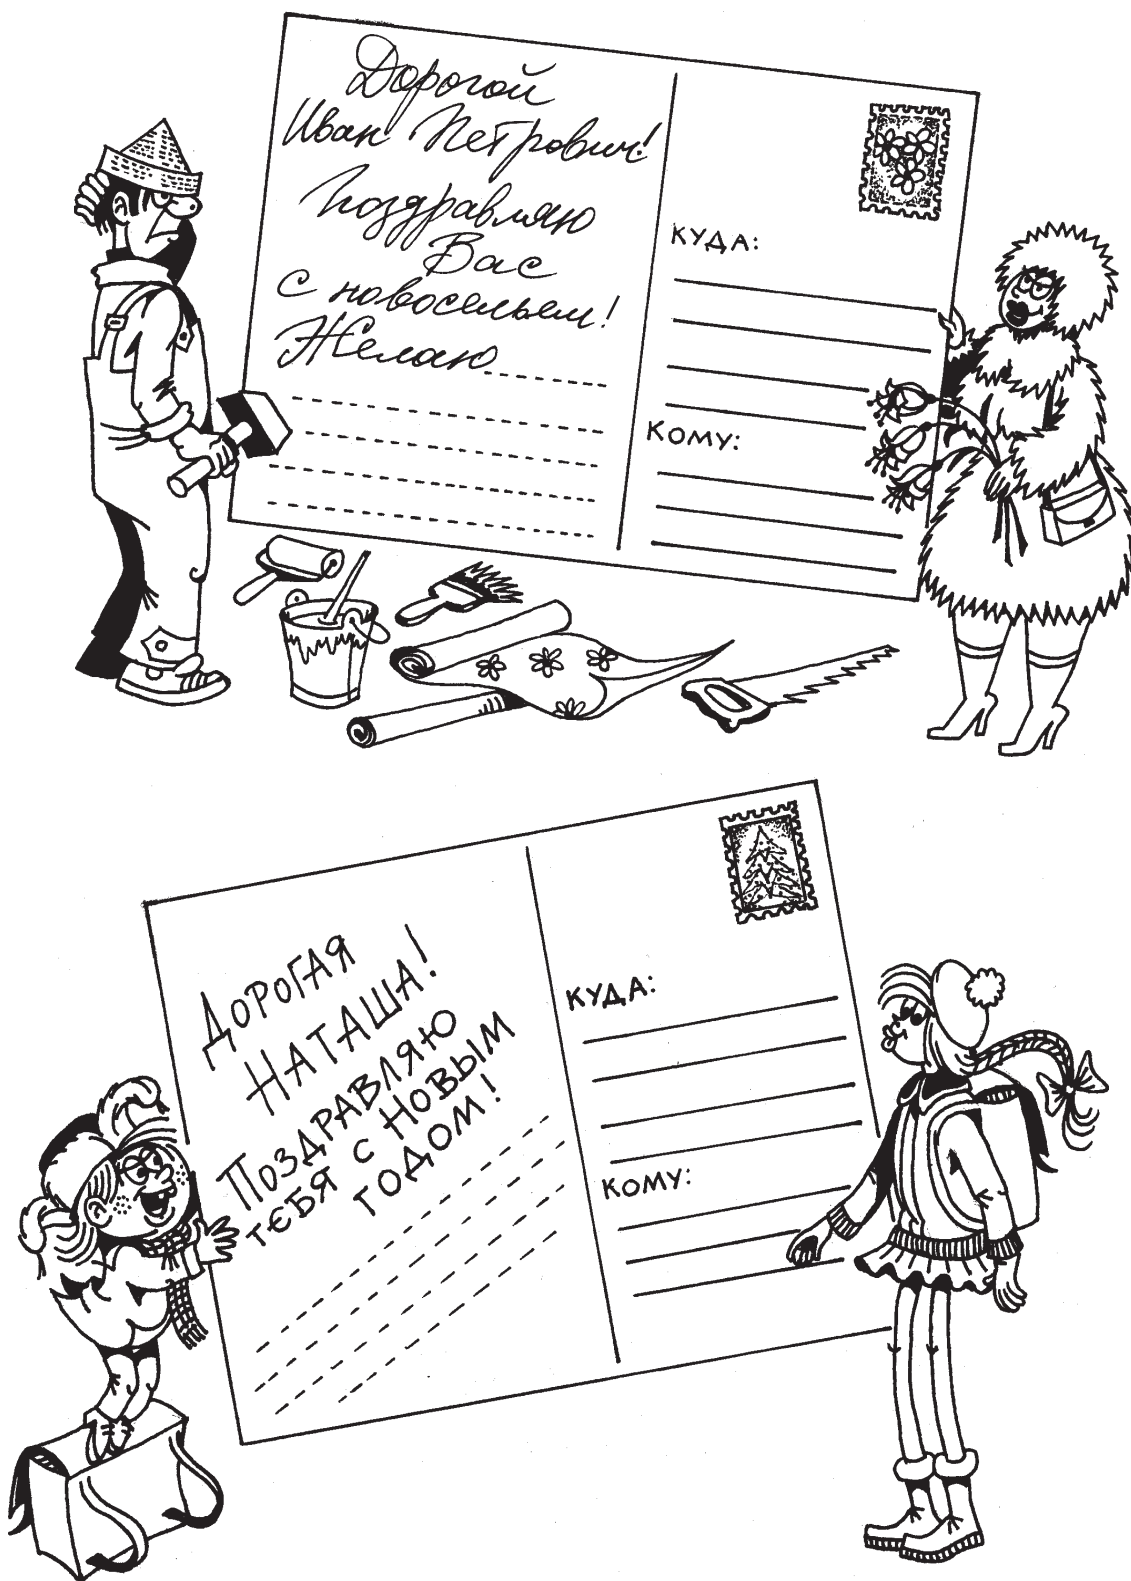 Дорогой
Иван Петрович!
Поздравляю
Вас
с новосельем!
Желаю
КУДА:
КОМУ:
ДОРОГАЯ
НАТАША!
ПОЗДРАВЛЯЮ
ТЕБЯ С НОВЫМ
ГОДОМ!
КУДА:
КОМУ: